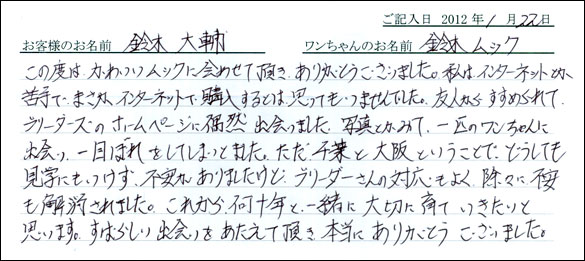 ご記入日 2012年 1月 22日
お客様のお名前 鈴木 大輔 ワンちゃんのお名前 鈴木 ムック
この度は、かわいいムックに会わせて頂き、ありがとうございました。私は、インターネットとか
苦手で、まさか、インターネットで、購入するとは、思ってもいませんでした。友人から、すすめられて、
ブリーダーズのホームページに偶然 出会いました。写真とかみて、一匹のワンちゃんに
出会い、一目ぼれをしてしまいました。ただ、千葉と大阪ということで、どうしても
見学にもいけず、不安がありましたけど、ブリーダーさんの対応もよく、除々に不安
も解消されました。これから、何十年と、一緒に大切に育ていきたいと
思います。すばらしい出会いをあたえて頂き、本当にありがとうございました。